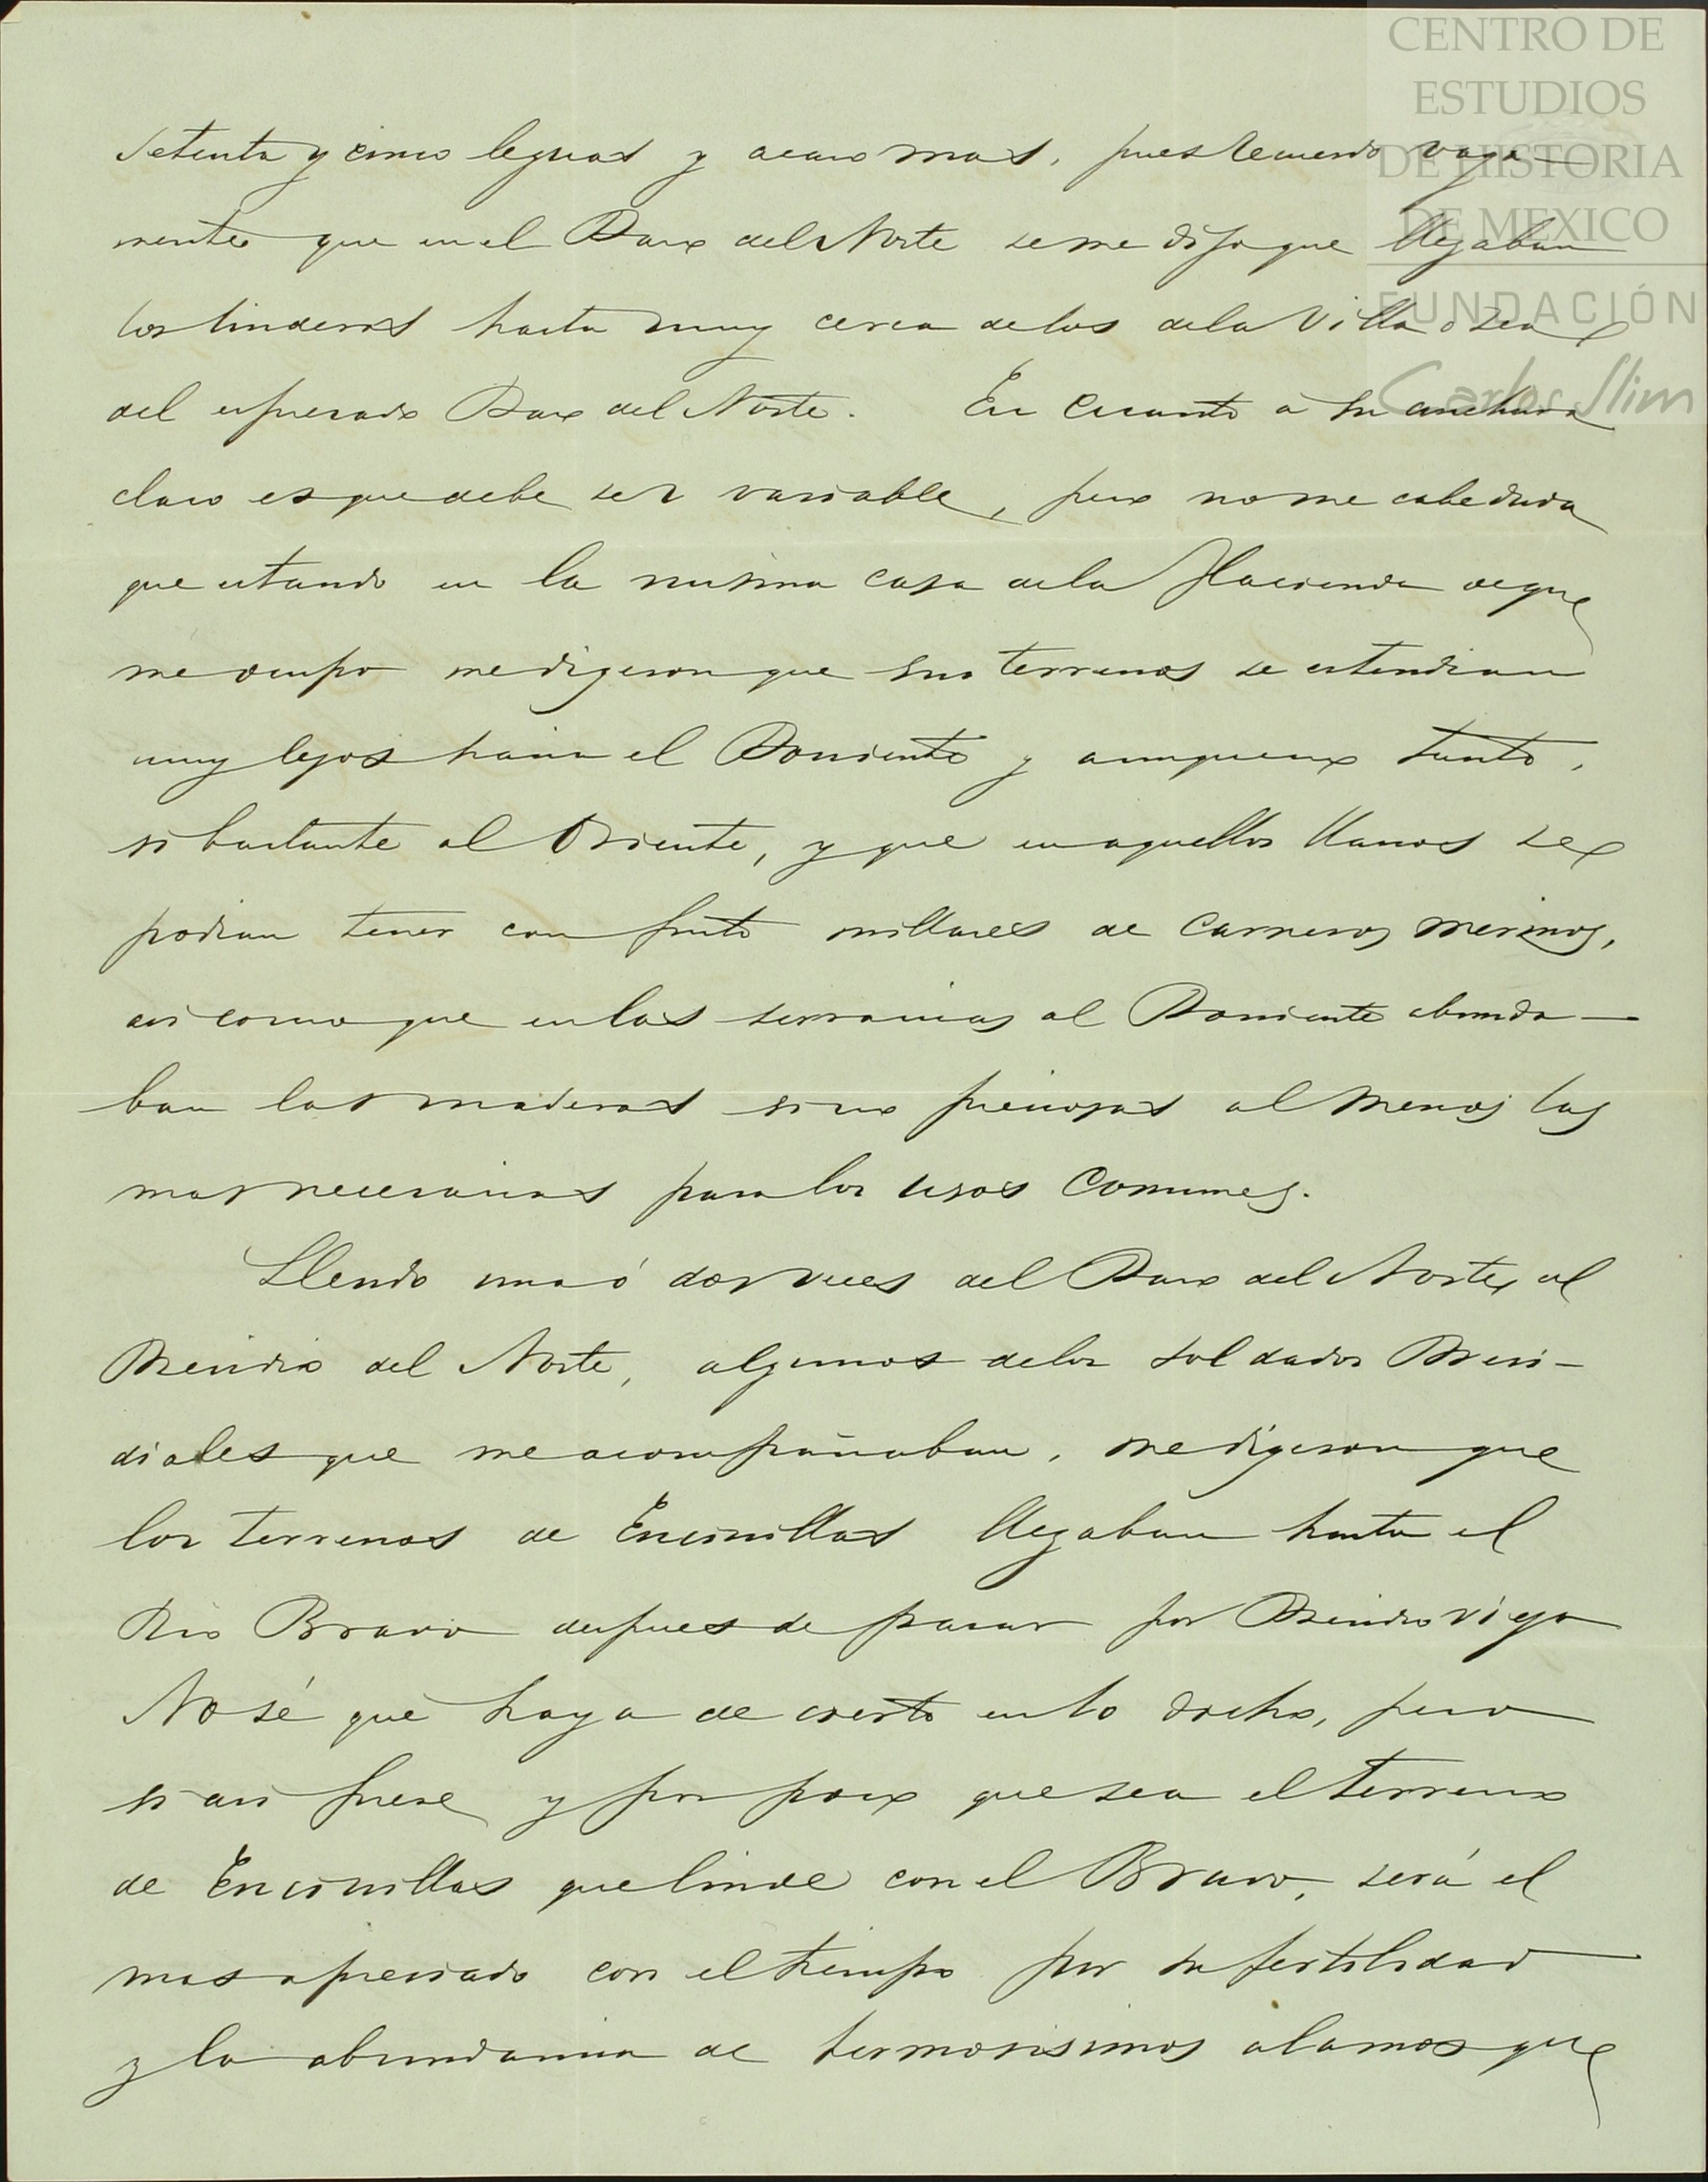 CENTRO DE
ESTUDIOS
DE HISTORIA
DE MEXICO
FUNDACIÓN
Carlos Slim
setenta y cinco leguas y acaso mas, pues recuerdo vaga-
mente que en el Paso del Norte se me dijo que llegaban
los linderos hasta muy cerca de los de la Villa o sea
del espresado Paso del Norte. En cuanto á su anchura
claro es que debe ser variable, pero no me cabe duda
que estando en la misma casa de la Hacienda de que
me ocupo me digeron que sus terrenos se estendian
muy lejos hacia el Poniente y aunque no tanto,
si bastante al Oriente, y que en aquellos llanos se
podian tener con fruto millares de Carneros merinos,
asi como que en las serranias al Poniente abunda-
ban las maderas si no preciosas al menos las
mas necesarias para los usos Comunes.
Llendo una ó dos veces del Paso del Norte al
Presidio del Norte, algunos de los soldados Presi-
diales que me acompañaban, me digeron que
los terrenos de Encinillas llegaban hasta el
Rio Bravo despues de pasar por Presidio viejo
No sé qué haya de cierto en lo dicho, pero
si asi fuese y por poco que sea el terreno
de Encinillas que linde con el Bravo, será el
mas apreciado con el tiempo por su fertilidad
y la abundancia de hermosisimos alamos que